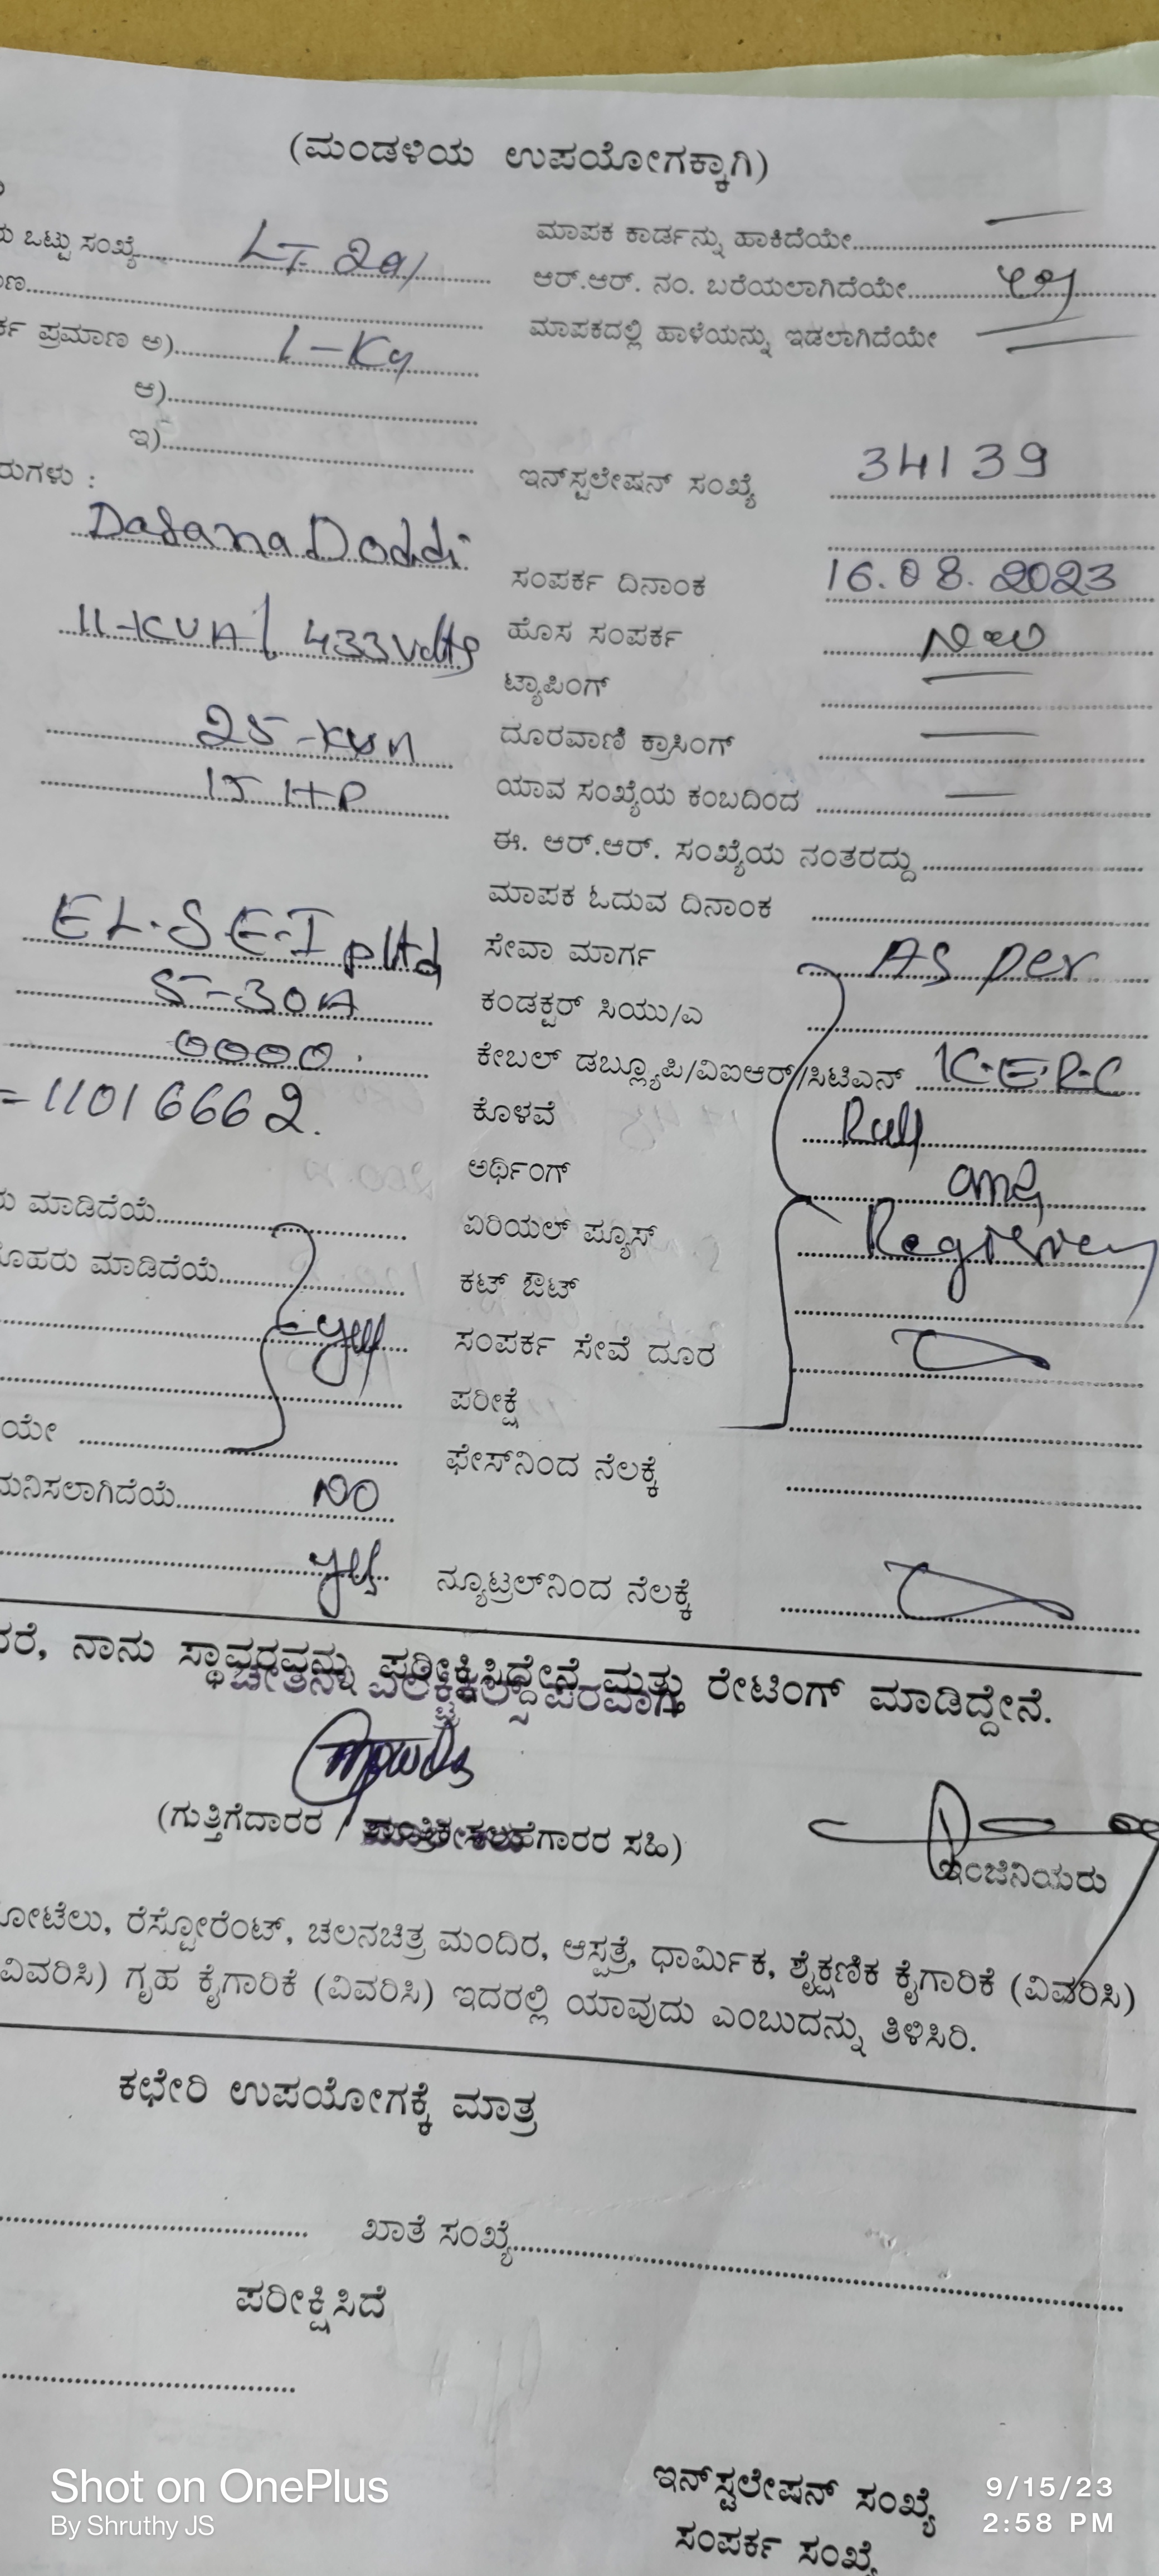 (ಮಂಡಳಿಯ ಉಪಯೋಗಕ್ಕಾಗಿ)
ಒಟ್ಟು ಸಂಖ್ಯೆ LT 2a/ ಮಾಪಕ ಕಾರ್ಡನ್ನು ಹಾಕಿದೆಯೇ —
ಆರ್.ಆರ್. ನಂ. ಬರೆಯಲಾಗಿದೆಯೇ
ಪ್ರಮಾಣ ಅ) 1-Kw ಮಾಪಕದಲ್ಲಿ ಹಾಳೆಯನ್ನು ಇಡಲಾಗಿದೆಯೇ —
ಆ)
ಇ)
ಇನ್‌ಸ್ಟಲೇಷನ್ ಸಂಖ್ಯೆ 34139
Dasana Doddi
ಸಂಪರ್ಕ ದಿನಾಂಕ 16.08.2023
11-KVA/ 433 Volts ಹೊಸ ಸಂಪರ್ಕ New
ಟ್ಯಾಪಿಂಗ್ —
25-KVA ದೂರವಾಣಿ ಕ್ರಾಸಿಂಗ್ —
15 HP ಯಾವ ಸಂಖ್ಯೆಯ ಕಂಬದಿಂದ —
ಈ. ಆರ್.ಆರ್. ಸಂಖ್ಯೆಯ ನಂತರದ್ದು
ಮಾಪಕ ಓದುವ ದಿನಾಂಕ
EL.S.E.I pltd ಸೇವಾ ಮಾರ್ಗ As per
5-30A ಕಂಡಕ್ಟರ್ ಸಿಯು/ಎ
0000. ಕೇಬಲ್ ಡಬ್ಲ್ಯೂಪಿ/ವಿಐಆರ್/ಸಿಟಿಎನ್ K.E.R.C
=11016662. ಕೊಳವೆ
ಅರ್ಥಿಂಗ್ and
ಮಾಡಿದೆಯೆ ಏರಿಯಲ್ ಪ್ಯೂಸ್
ಮಾಡಿದೆಯೆ ಕಟ್ ಔಟ್
yes ಸಂಪರ್ಕ ಸೇವೆ ದೂರ
ಪರೀಕ್ಷೆ
ಫೇಸ್‌ನಿಂದ ನೆಲಕ್ಕೆ
NO
yes ನ್ಯೂಟ್ರಲ್‌ನಿಂದ ನೆಲಕ್ಕೆ
ನಾನು ಸ್ಥಾವರವನ್ನು ಪರೀಕ್ಷಿಸಿದ್ದೇನೆ ಮತ್ತು ರೇಟಿಂಗ್ ಮಾಡಿದ್ದೇನೆ.
ಚೇತನಾ ಎಲೆಕ್ಟ್ರಿಕಲ್ಸ್ ಪರವಾಗಿ
(ಗುತ್ತಿಗೆದಾರರ / ತಾಂತ್ರಿಕ ಸಲಹೆಗಾರರ ಸಹಿ)
ಇಂಜಿನಿಯರು
ರೆಸ್ಟೋರೆಂಟ್, ಚಲನಚಿತ್ರ ಮಂದಿರ, ಆಸ್ಪತ್ರೆ, ಧಾರ್ಮಿಕ, ಶೈಕ್ಷಣಿಕ ಕೈಗಾರಿಕೆ (ವಿವರಿಸಿ)
ವಿವರಿಸಿ) ಗೃಹ ಕೈಗಾರಿಕೆ (ವಿವರಿಸಿ) ಇದರಲ್ಲಿ ಯಾವುದು ಎಂಬುದನ್ನು ತಿಳಿಸಿರಿ.
ಕಛೇರಿ ಉಪಯೋಗಕ್ಕೆ ಮಾತ್ರ
ಖಾತೆ ಸಂಖ್ಯೆ
ಪರೀಕ್ಷಿಸಿದೆ
ಇನ್‌ಸ್ಟಲೇಷನ್ ಸಂಖ್ಯೆ
ಸಂಪರ್ಕ ಸಂಖ್ಯೆ
Shot on OnePlus
By Shruthy JS
9/15/23
2:58 PM